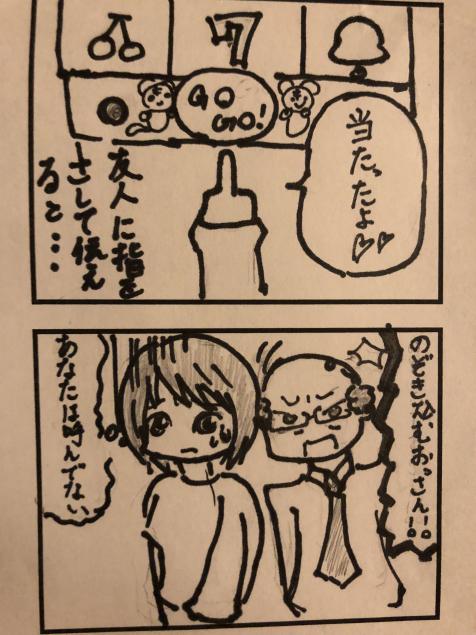 7
GO
GO!
当たったよ♡♡
友人に指を
さして伝え
ると…
のぞき込むおっさん!!
あなたは呼んでない